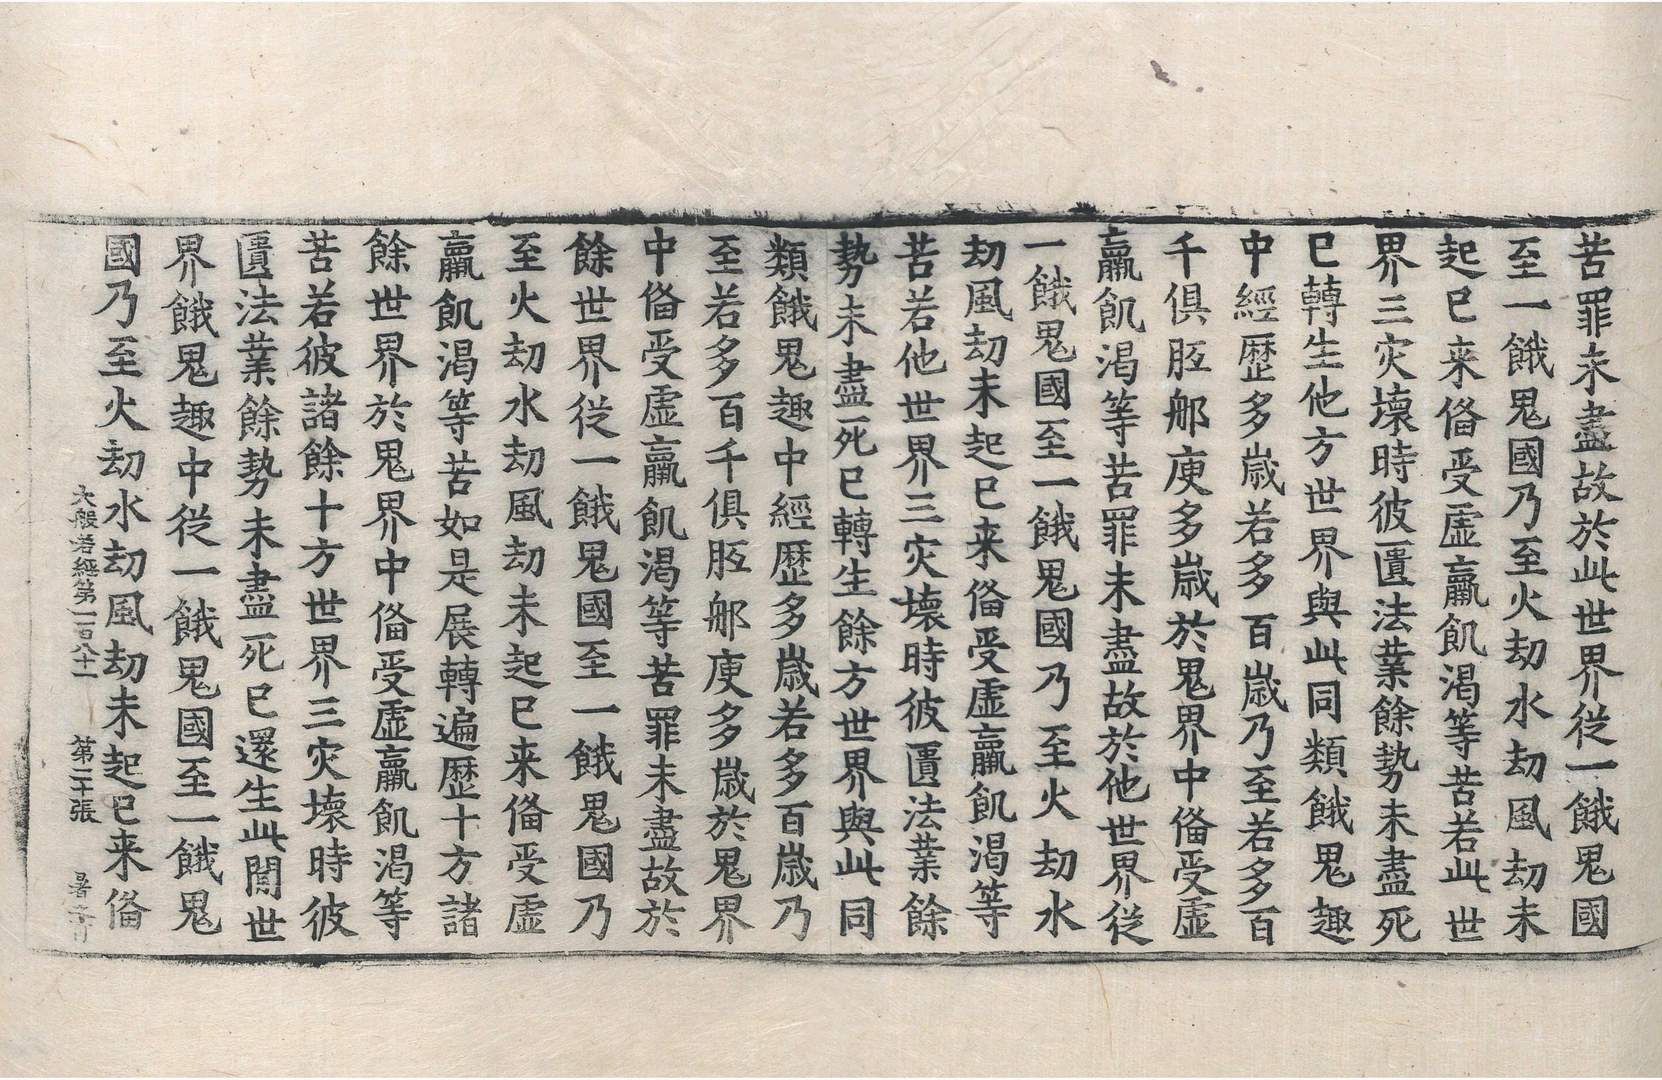 苦罪未盡故於此世界從一餓鬼國
至一餓鬼國乃至火劫水劫風劫未
起已来俻受虛羸飢渴等苦若此世
界三灾壞時彼匱法業餘勢未盡死
已轉生他方世界與此同類餓鬼趣
中經歷多歲若多百歲乃至若多百
千俱胝那庾多歲於鬼界中俻受虛
羸飢渴等苦罪未盡故於他世界從
一餓鬼國至一餓鬼國乃至火劫水
劫風劫未起已来俻受虛羸飢渴等
苦若他世界三灾壞時彼匱法業餘
勢未盡死已轉生餘方世界與此同
類餓鬼趣中經歷多歲若多百歲乃
至若多百千俱胝那庾多歲於鬼界
中俻受虛羸飢渴等苦罪未盡故於
餘世界從一餓鬼國至一餓鬼國乃
至火劫水劫風劫未起已来俻受虛
羸飢渴等苦如是展轉遍歷十方諸
餘世界於鬼界中俻受虛羸飢渴等
苦若彼諸餘十方世界三灾壞時彼
匱法業餘勢未盡死已還生此閒世
界餓鬼趣中從一餓鬼國至一餓鬼
國乃至火劫水劫風劫未起已来俻
大般若經第一百八十一 第二十張